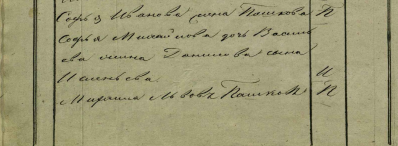 Софья Иванова жена Пашкова П
Софья Михайлова дочь Василь
ева жена Данилова сына
И
Михаила Львовъ Пашковъ П